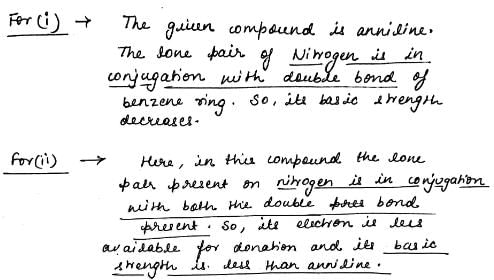 For (i) → The given compound is anniline.
The lone pair of Nitrogen is in
conjugation with double bond of
benzene ring. So, its basic strength
decreases.
For (ii) → Here, in this compound the lone
pair present on nitrogen is in conjugation
with both the double pres bond
present. So, its electron is less
available for donation and its basic
strength is less than anniline.